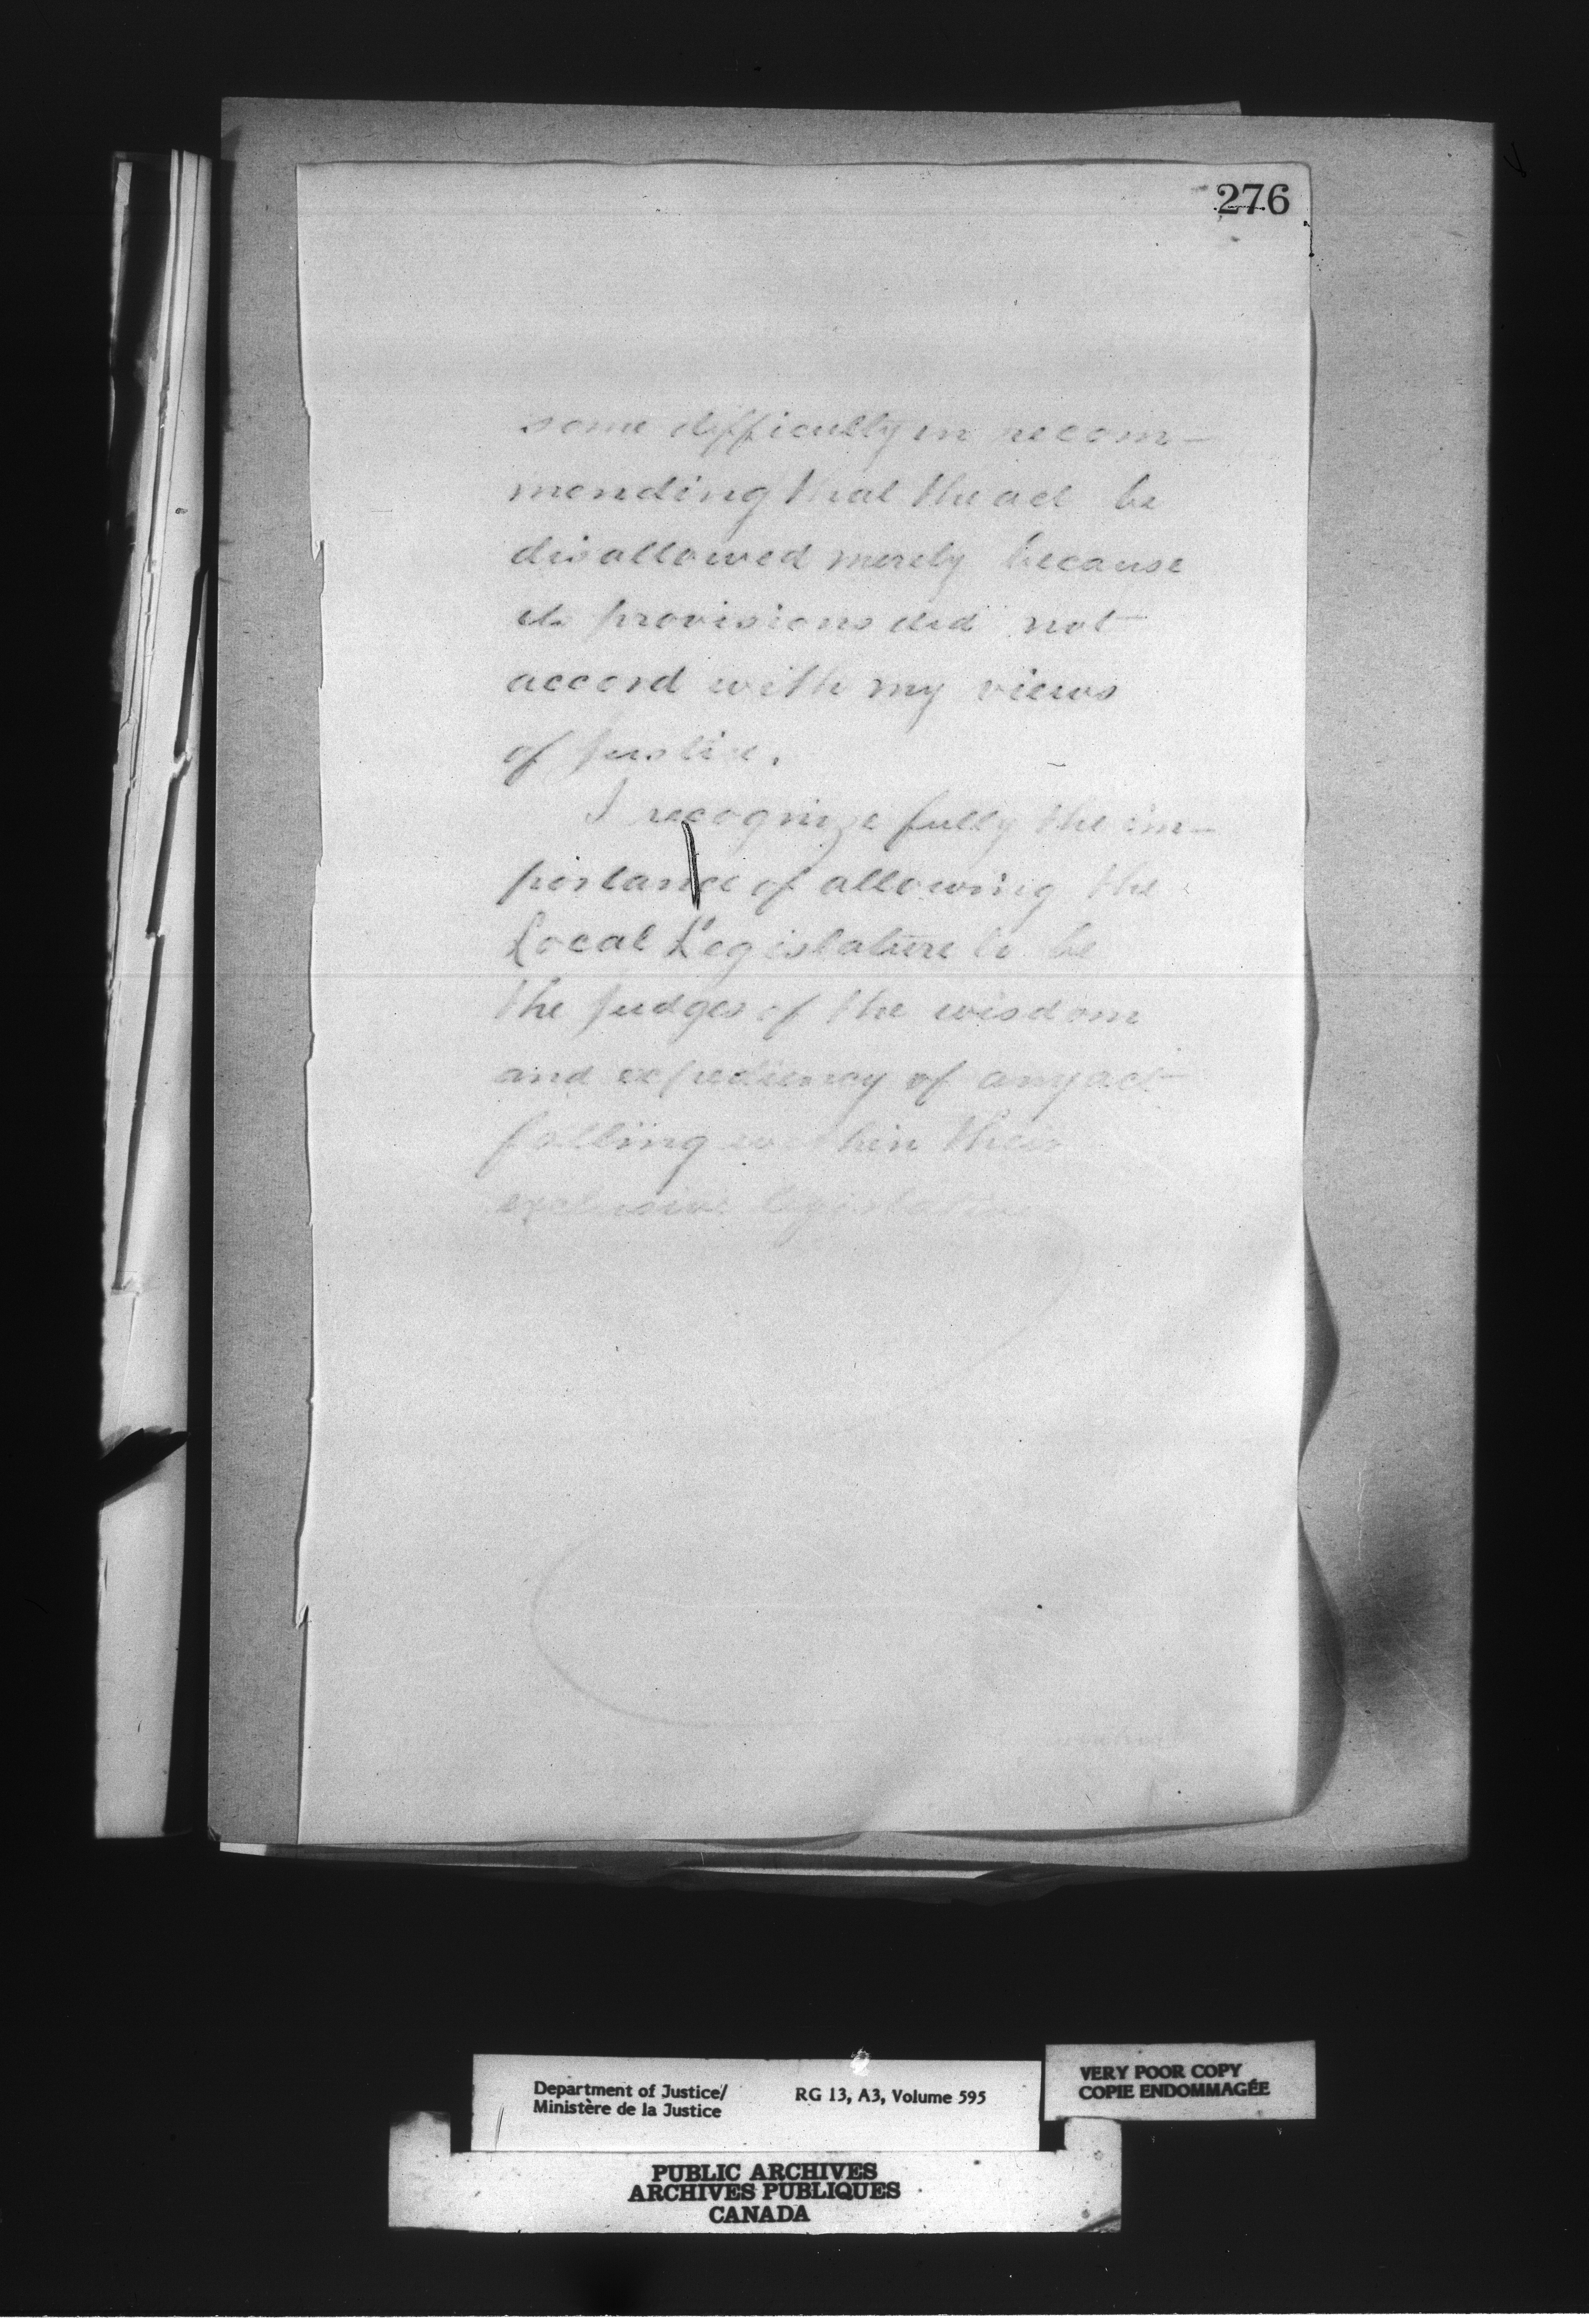 276
some difficulty in recom-
mending that the act be
disallowed merely because
its provisions did not
accord with my views
of justice.
I recognize fully the im-
portance of allowing the
Local Legislature to be
the judges of the wisdom
and expediency of any act
falling within their
exclusive legislative
Department of Justice/
Ministère de la Justice
RG 13, A3, Volume 595
VERY POOR COPY
COPIE ENDOMMAGÉE
PUBLIC ARCHIVES
ARCHIVES PUBLIQUES
CANADA